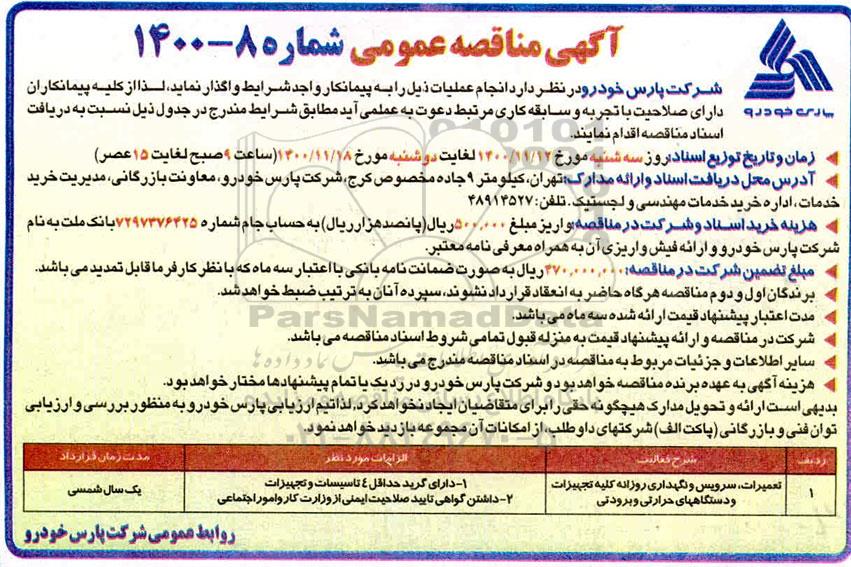 آگهی مناقصه عمومی شماره ۸-۱۴۰۰
پارس خودرو
شرکت پارس خودرو در نظر دارد انجام عملیات ذیل را به پیمانکار واجد شرایط واگذار نماید، لذا از کلیه پیمانکاران
دارای صلاحیت با تجربه و سابقه کاری مرتبط دعوت به عمل می آید مطابق شرایط مندرج در جدول ذیل نسبت به دریافت
اسناد مناقصه اقدام نمایند.
زمان و تاریخ توزیع اسناد: روز سه شنبه مورخ ۱۴۰۰/۱۱/۱۲ لغایت دوشنبه مورخ ۱۴۰۰/۱۱/۱۸ (ساعت ۹ صبح لغایت ۱۵ عصر)
آدرس محل دریافت اسناد و ارائه مدارک: تهران، کیلومتر ۹ جاده مخصوص کرج، شرکت پارس خودرو، معاونت بازرگانی، مدیریت خرید
خدمات، اداره خرید خدمات مهندسی و لجستیک. تلفن: ۴۸۹۱۴۵۲۷
هزینه خرید اسناد و شرکت در مناقصه: واریز مبلغ ۵۰۰,۰۰۰ ریال (پانصد هزار ریال) به حساب جام شماره ۷۲۹۷۳۷۶۴۲۵ بانک ملت به نام
شرکت پارس خودرو و ارائه فیش واریزی آن به همراه معرفی نامه معتبر.
مبلغ تضمین شرکت در مناقصه: ۴۷۰,۰۰۰,۰۰۰ ریال به صورت ضمانت نامه بانکی با اعتبار سه ماه که با نظر کارفرما قابل تمدید می باشد.
برندگان اول و دوم مناقصه هرگاه حاضر به انعقاد قرارداد نشوند، سپرده آنان به ترتیب ضبط خواهد شد.
مدت اعتبار پیشنهاد قیمت ارائه شده سه ماه می باشد.
شرکت در مناقصه و ارائه پیشنهاد قیمت به منزله قبول تمامی شروط اسناد مناقصه می باشد.
سایر اطلاعات و جزئیات مربوط به مناقصه در اسناد مناقصه مندرج می باشد.
هزینه آگهی به عهده برنده مناقصه خواهد بود و شرکت پارس خودرو در رد یک یا تمام پیشنهادها مختار خواهد بود.
بدیهی است ارائه و تحویل مدارک هیچگونه حقی را برای متقاضیان ایجاد نخواهد کرد. لذا تیم ارزیابی پارس خودرو به منظور بررسی و ارزیابی
توان فنی و بازرگانی (پاکت الف) شرکتهای داوطلب، از امکانات آن مجموعه بازدید خواهد نمود.
ردیف شرح فعالیت الزامات مورد نظر مدت زمان قرارداد
۱ تعمیرات، سرویس و نگهداری روزانه کلیه تجهیزات و دستگاههای حرارتی و برودتی ۱-دارای گرید حداقل ٤ تاسیسات و تجهیزات ۲-داشتن گواهی تایید صلاحیت ایمنی از وزارت کار و امور اجتماعی یک سال شمسی
روابط عمومی شرکت پارس خودرو
ParsNamadData